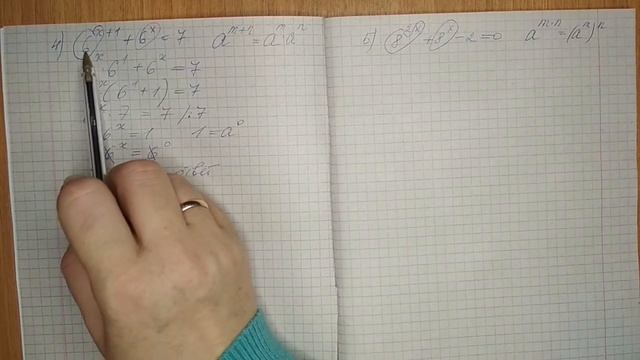 4) 6^{x+1} + 6^x = 7     a^{m+n} = a^m a^n
6^x · 6^1 + 6^x = 7
6^x (6^1 + 1) = 7
6^x · 7 = 7 /:7
6^x = 1     1 = a^0
6^x = 6^0
ответ
5) 8^{2x} + 8^x - 2 = 0     a^{m·n} = (a^m)^n